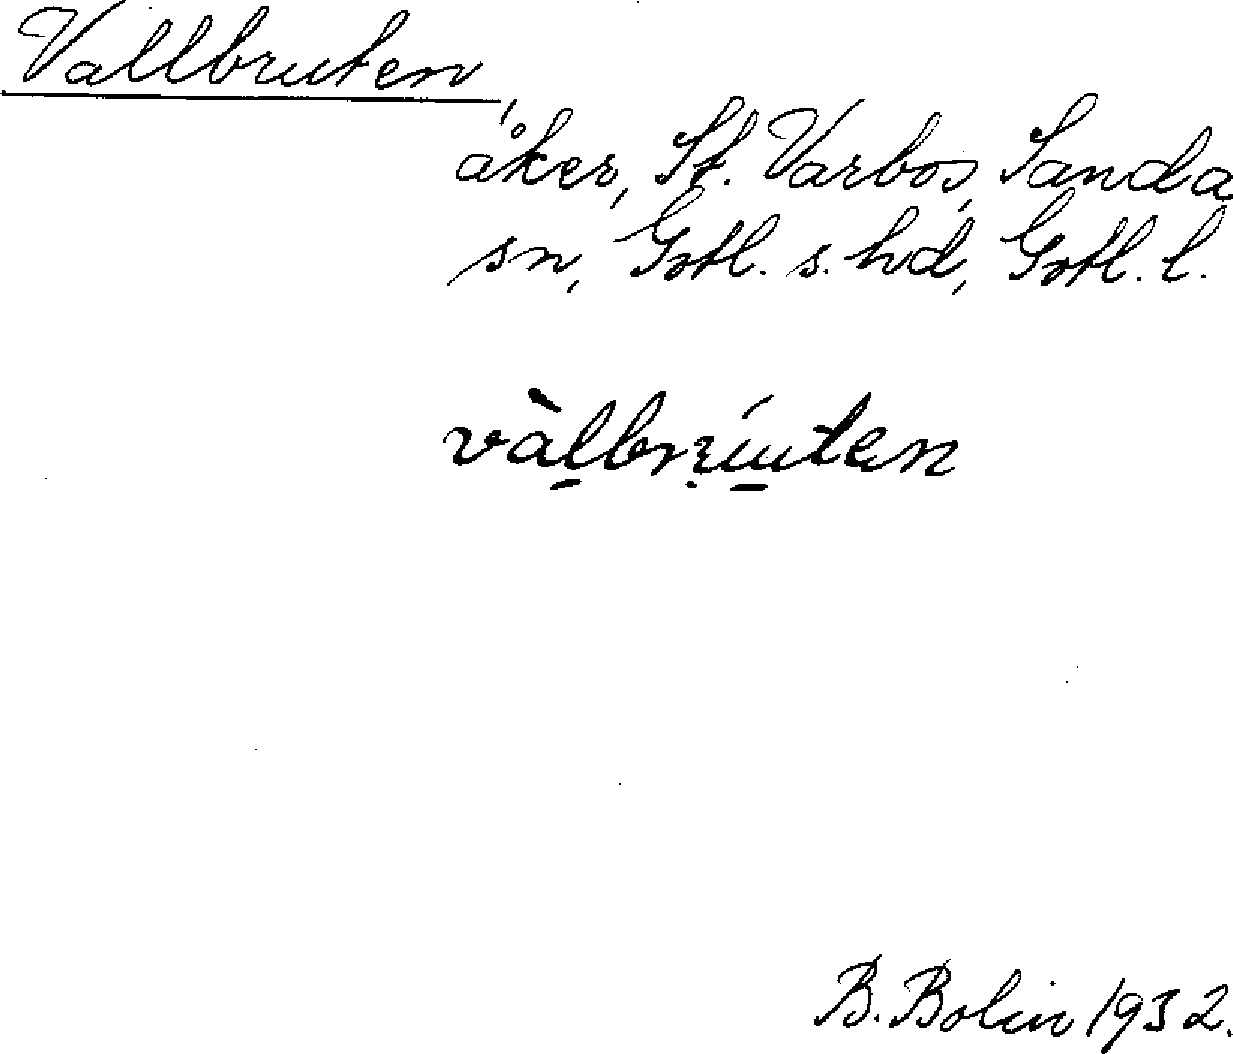 Vallbruten,
åker, St. Varbos, Sanda
sn, Gotl. s. hd, Gotl. l.
B. Bolin 1932.